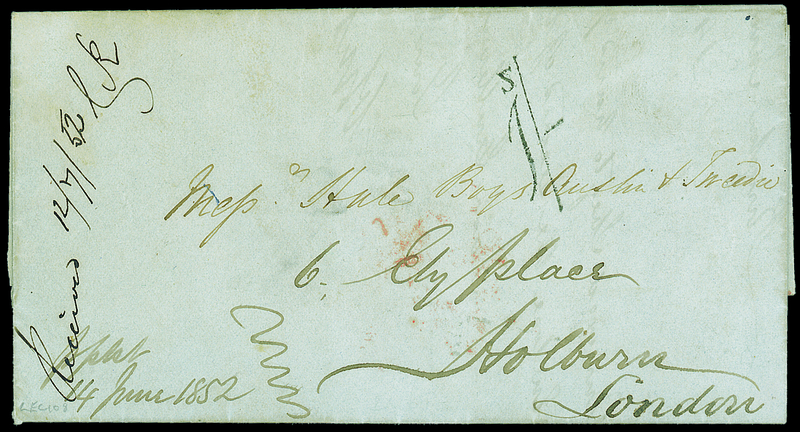 Received 12/7/52
s
1/-
Mess.rs Hale Boys Austin & Tweedie
6. Ely place
Holburn
London
14 June 1852
LEC108